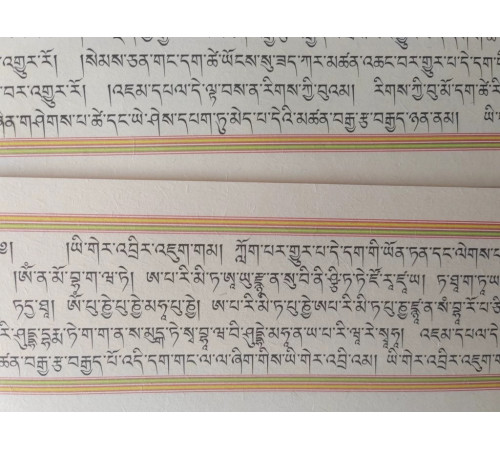 འགྱུར་རོ། །སེམས་ཅན་གང་དག་ཚེ་ཡོངས་སུ་ཟད་ཀར་མཚན་འཆང་བར་གྱུར་པ་དེ་དག་
བར་འགྱུར་རོ། །འཇམ་དཔལ་དེ་ལྟ་བས་ན་རིགས་ཀྱི་བུའམ། རིགས་ཀྱི་བུ་མོ་དག་ཚེ་
གཤེགས་པ་ཚེ་དང་ཡེ་ཤེས་དཔག་ཏུ་མེད་པ་དེའི་མཚན་བརྒྱ་རྩ་བརྒྱད་ཉན་ནམ། ཡི་
།ཡི་གེར་འབྲིར་འཇུག་གམ། ཀློག་པར་གྱུར་པ་དེ་དག་གི་ཡོན་ཏན་དང་ལེགས་པ
།ཨོཾ་ན་མོ་བྷ་ག་ཝ་ཏེ། ཨ་པ་རི་མི་ཏ་ཨཱ་ཡུ་རྫྙཱ་ན་སུ་བི་ནི་ཤྩི་ཏ་ཏེ་ཛོ་རཱ་ཛཱ་ཡ། ཏ་ཐཱ་ག་ཏཱ་ཡ
ཏདྱ་ཐཱ། ཨོཾ་པུ་ཎྱེ་པུ་ཎྱེ་མ་ཧཱ་པུ་ཎྱེ། ཨ་པ་རི་མི་ཏ་པུ་ཎྱེ་ཨ་པ་རི་མི་ཏ་པུ་ཎྱ་རྫྙཱ་ན་སཾ་བྷཱ་རོ་པ་ཙི
རི་ཤུདྡྷ་དྷརྨ་ཏེ་ག་ག་ན་ས་མུདྒ་ཏེ་སྭ་བྷཱ་ཝ་བི་ཤུདྡྷེ་མ་ཧཱ་ན་ཡ་པ་རི་ཝཱ་རེ་སྭཱ་ཧཱ། འཇམ་དཔལ་དེ
ཚན་བརྒྱ་རྩ་བརྒྱད་པོ་འདི་དག་གང་ལ་ལ་ཞིག་གིས་ཡི་གེར་འབྲི་འམ། ཡི་གེར་འབྲིར་འཇུག་གམ